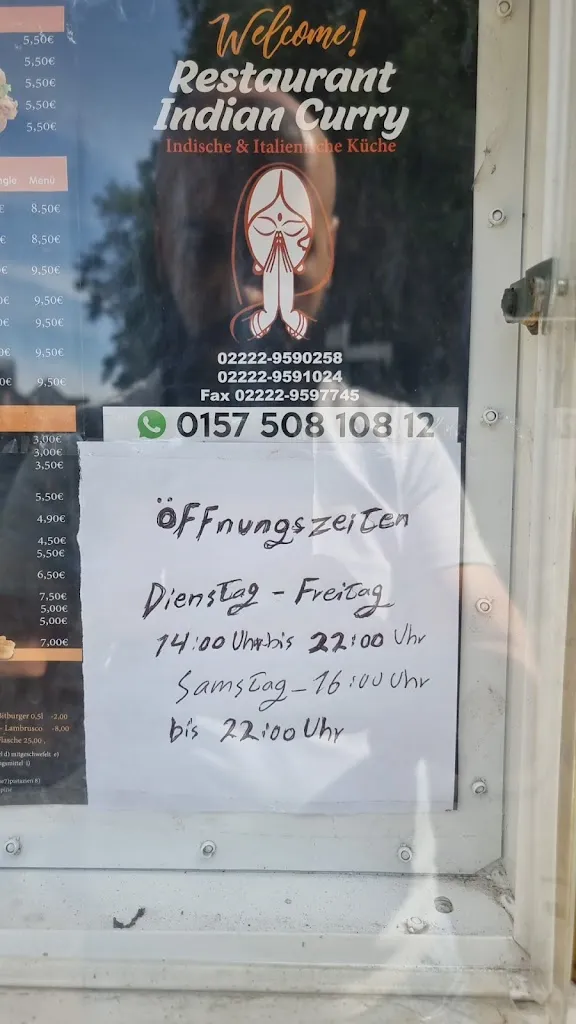 Welcome!
Restaurant
Indian Curry
Indische & Italienische Küche
02222-9590258
02222-9591024
Fax 02222-9597745
0157 508 108 12
Öffnungszeiten
Dienstag - Freitag
14:00 Uhr bis 22:00 Uhr
Samstag - 16:00 Uhr
bis 22:00 Uhr
5,50€
5,50€
5,50€
5,50€
5,50€
Menü
8,50€
8,50€
9,50€
9,50€
9,50€
9,50€
9,50€
3,00€
3,00€
3,50€
5,50€
4,90€
4,50€
5,50€
6,50€
7,50€
5,00€
5,00€
7,00€
Bitburger 0,5l -2,00
- Lambrusco -8,00
Flasche 25,00